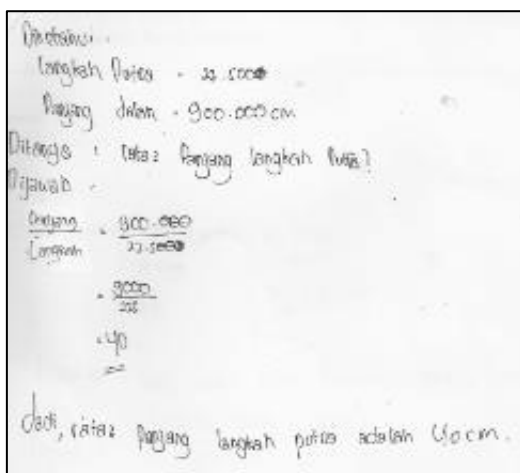 Diketahui :
Langkah Putra = 22.500
Panjang dalam = 900.000 cm
Ditanya : rata2 Panjang langkah Putra?
Dijawab :
Panjang / Langkah = 900.000 / 22.500
= 9000 / 225
= 40
Jadi, rata2 Panjang langkah putra adalah 40 cm.